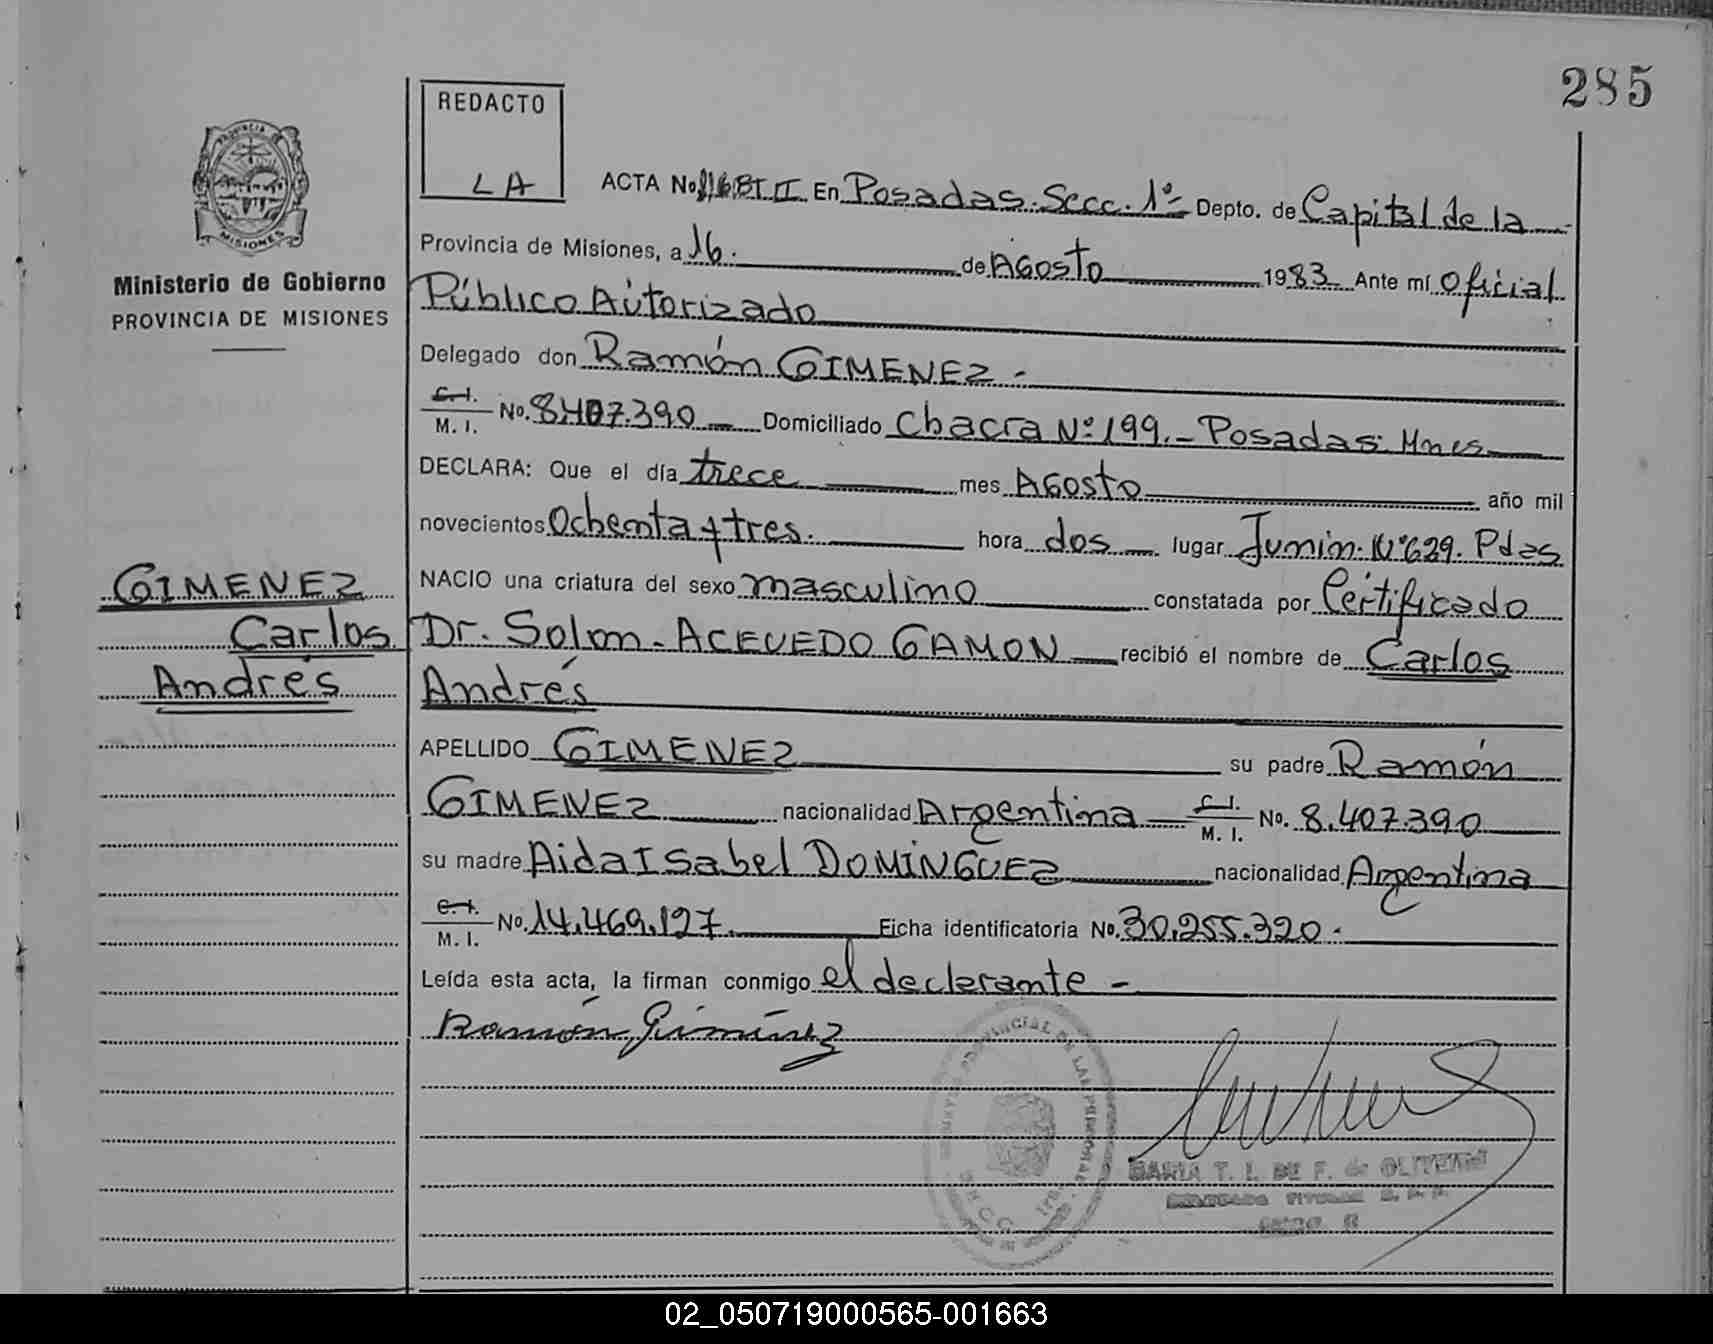 285
REDACTO
LA
ACTA No. En Posadas. Secc. 1º Depto. de Capital de la
Provincia de Misiones, a 16. de Agosto 1983 Ante mí Oficial
Ministerio de Gobierno
PROVINCIA DE MISIONES
Público Aútorizado
Delegado don Ramón GIMENEZ -
C. I.
M. I. No. 8.407.390 Domiciliado Chacra Nº 199.- Posadas. Mnes
DECLARA: Que el día trece mes Agosto año mil
novecientos Ochenta y tres. hora dos lugar Junín. Nº 629. Pdas
NACIO una criatura del sexo masculino constatada por Certificado
GIMENEZ
Carlos
Andrés
Dr. Solon - ACEVEDO GAMON recibió el nombre de Carlos
Andrés
APELLIDO GIMENEZ su padre Ramón
GIMENEZ nacionalidad Argentina C. I.
M. I. No. 8.407.390
su madre Aida Isabel DOMÍNGUEZ nacionalidad Argentina
C. I.
M. I. No. 14.469.127. Ficha identificatoria No. 30.255.320.
Leída esta acta, la firman conmigo el declarante -
Ramón Giménez
PROVINCIAL DE LAS PERSONAS
MARIA T. L. DE F. de OLIVEIRA
02_050719000565-001663